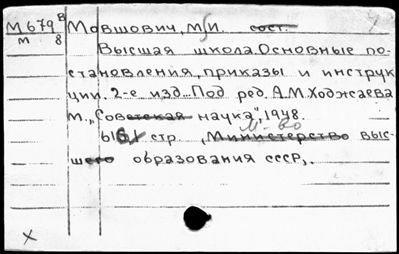 М679 в Мовшович, М.И. сост.
м 8 Высшая школа. Основные по-
становления, приказы и инструк
ции. 2-е изд... Под ред. А.М. Ходжаева
М., "Советская наука", 1948.
стр. , М-во
Министерство выс-
шего образования СССР,.
х